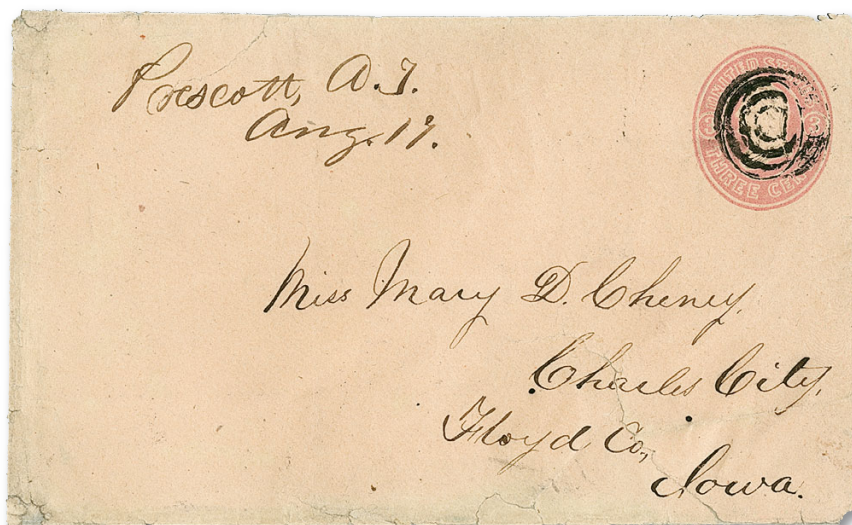 Prescott, A.T.
Aug. 17.
UNITED STA
THREE CEN
Miss Mary D. Cheney.
Charles City,
Floyd Co,
Iowa.